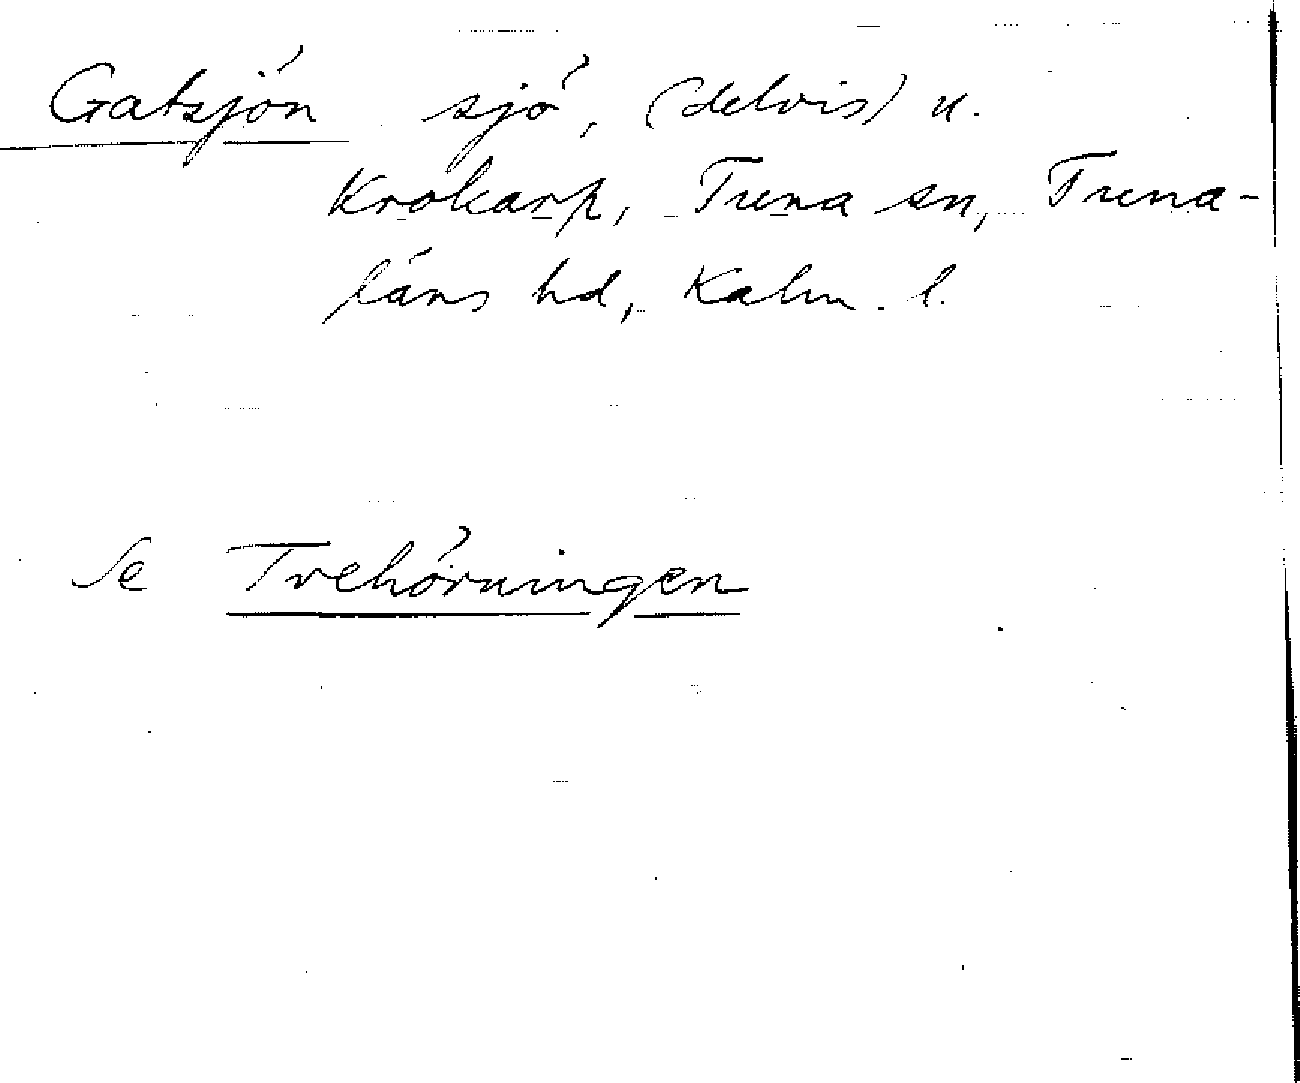 Gatsjön sjö, (delvis) u.
Krokarp, Tuna sn, Tuna-
läns hd, Kalm. l.
Se Trehörningen